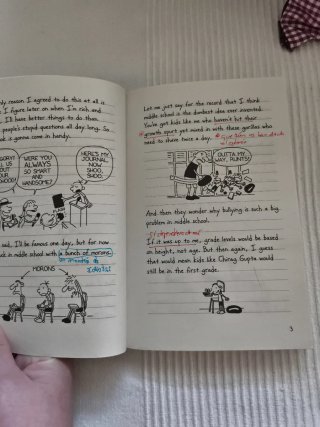 nly reason I agreed to do this at all is
I figure later on when I'm rich and
, I'll have better things to do than
people's stupid questions all day long. So
ok is gonna come in handy.
WERE YOU
ALWAYS
SO SMART
AND
HANDSOME?
HERE'S MY
JOURNAL.
NOW
SHOO,
SHOO.
said, I'll be famous one day, but for now
uck in middle school with a bunch of morons.
MORONS
Let me just say for the record that I think
middle school is the dumbest idea ever invented.
You got kids like me who haven't hit their
growth spurt yet mixed in with these gorillas who
need to shave twice a day.
OUTTA MY
WAY, RUNTS!
And then they wonder why bullying is such a big
problem in middle school.
If it was up to me, grade levels would be based
on height, not age. But then again, I guess
that would mean kids like Chirag Gupta would
still be in the first grade.
3